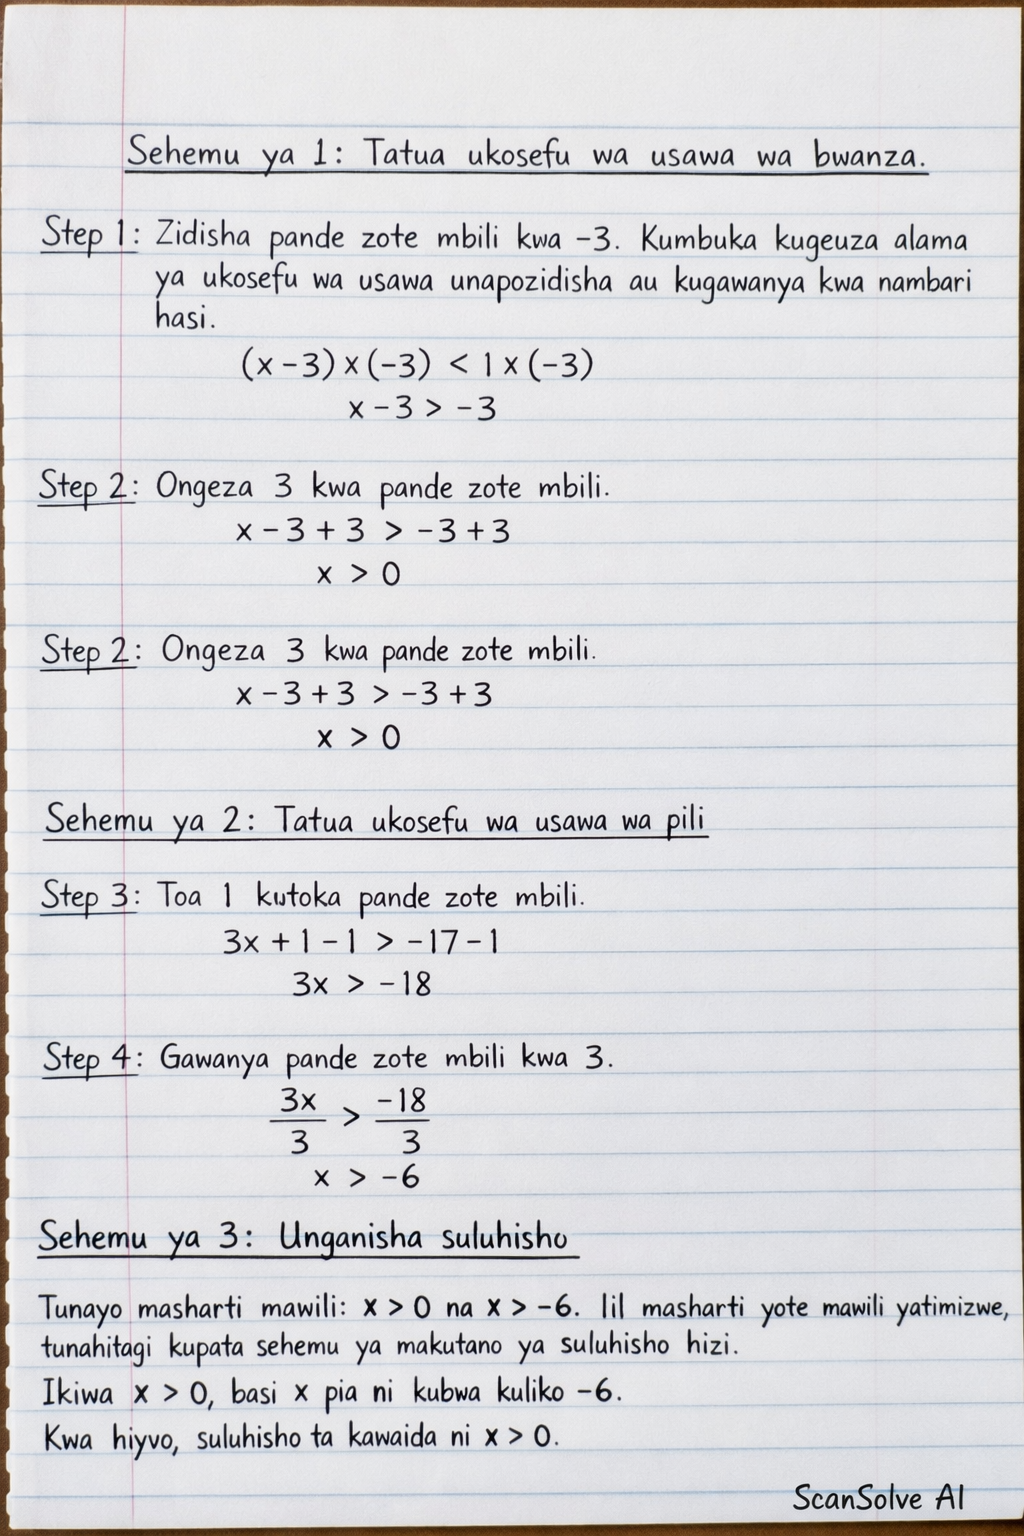 Sehemu ya 1: Tatua ukosefu wa usawa wa bwanza.
Step 1: Zidisha pande zote mbili kwa -3. Kumbuka kugeuza alama
ya ukosefu wa usawa unapozidisha au kugawanya kwa nambari
hasi.
(x - 3) x (-3) < 1 x (-3)
x - 3 > -3
Step 2: Ongeza 3 kwa pande zote mbili.
x - 3 + 3 > -3 + 3
x > 0
Step 2: Ongeza 3 kwa pande zote mbili.
x - 3 + 3 > -3 + 3
x > 0
Sehemu ya 2: Tatua ukosefu wa usawa wa pili
Step 3: Toa 1 kutoka pande zote mbili.
3x + 1 - 1 > -17 - 1
3x > -18
Step 4: Gawanya pande zote mbili kwa 3.
3x/3 > -18/3
x > -6
Sehemu ya 3: Unganisha suluhisho
Tunayo masharti mawili: x > 0 na x > -6. Iil masharti yote mawili yatimizwe,
tunahitagi kupata sehemu ya makutano ya suluhisho hizi.
Ikiwa x > 0, basi x pia ni kubwa kuliko -6.
Kwa hiyvo, suluhisho ta kawaida ni x > 0.
ScanSolve AI